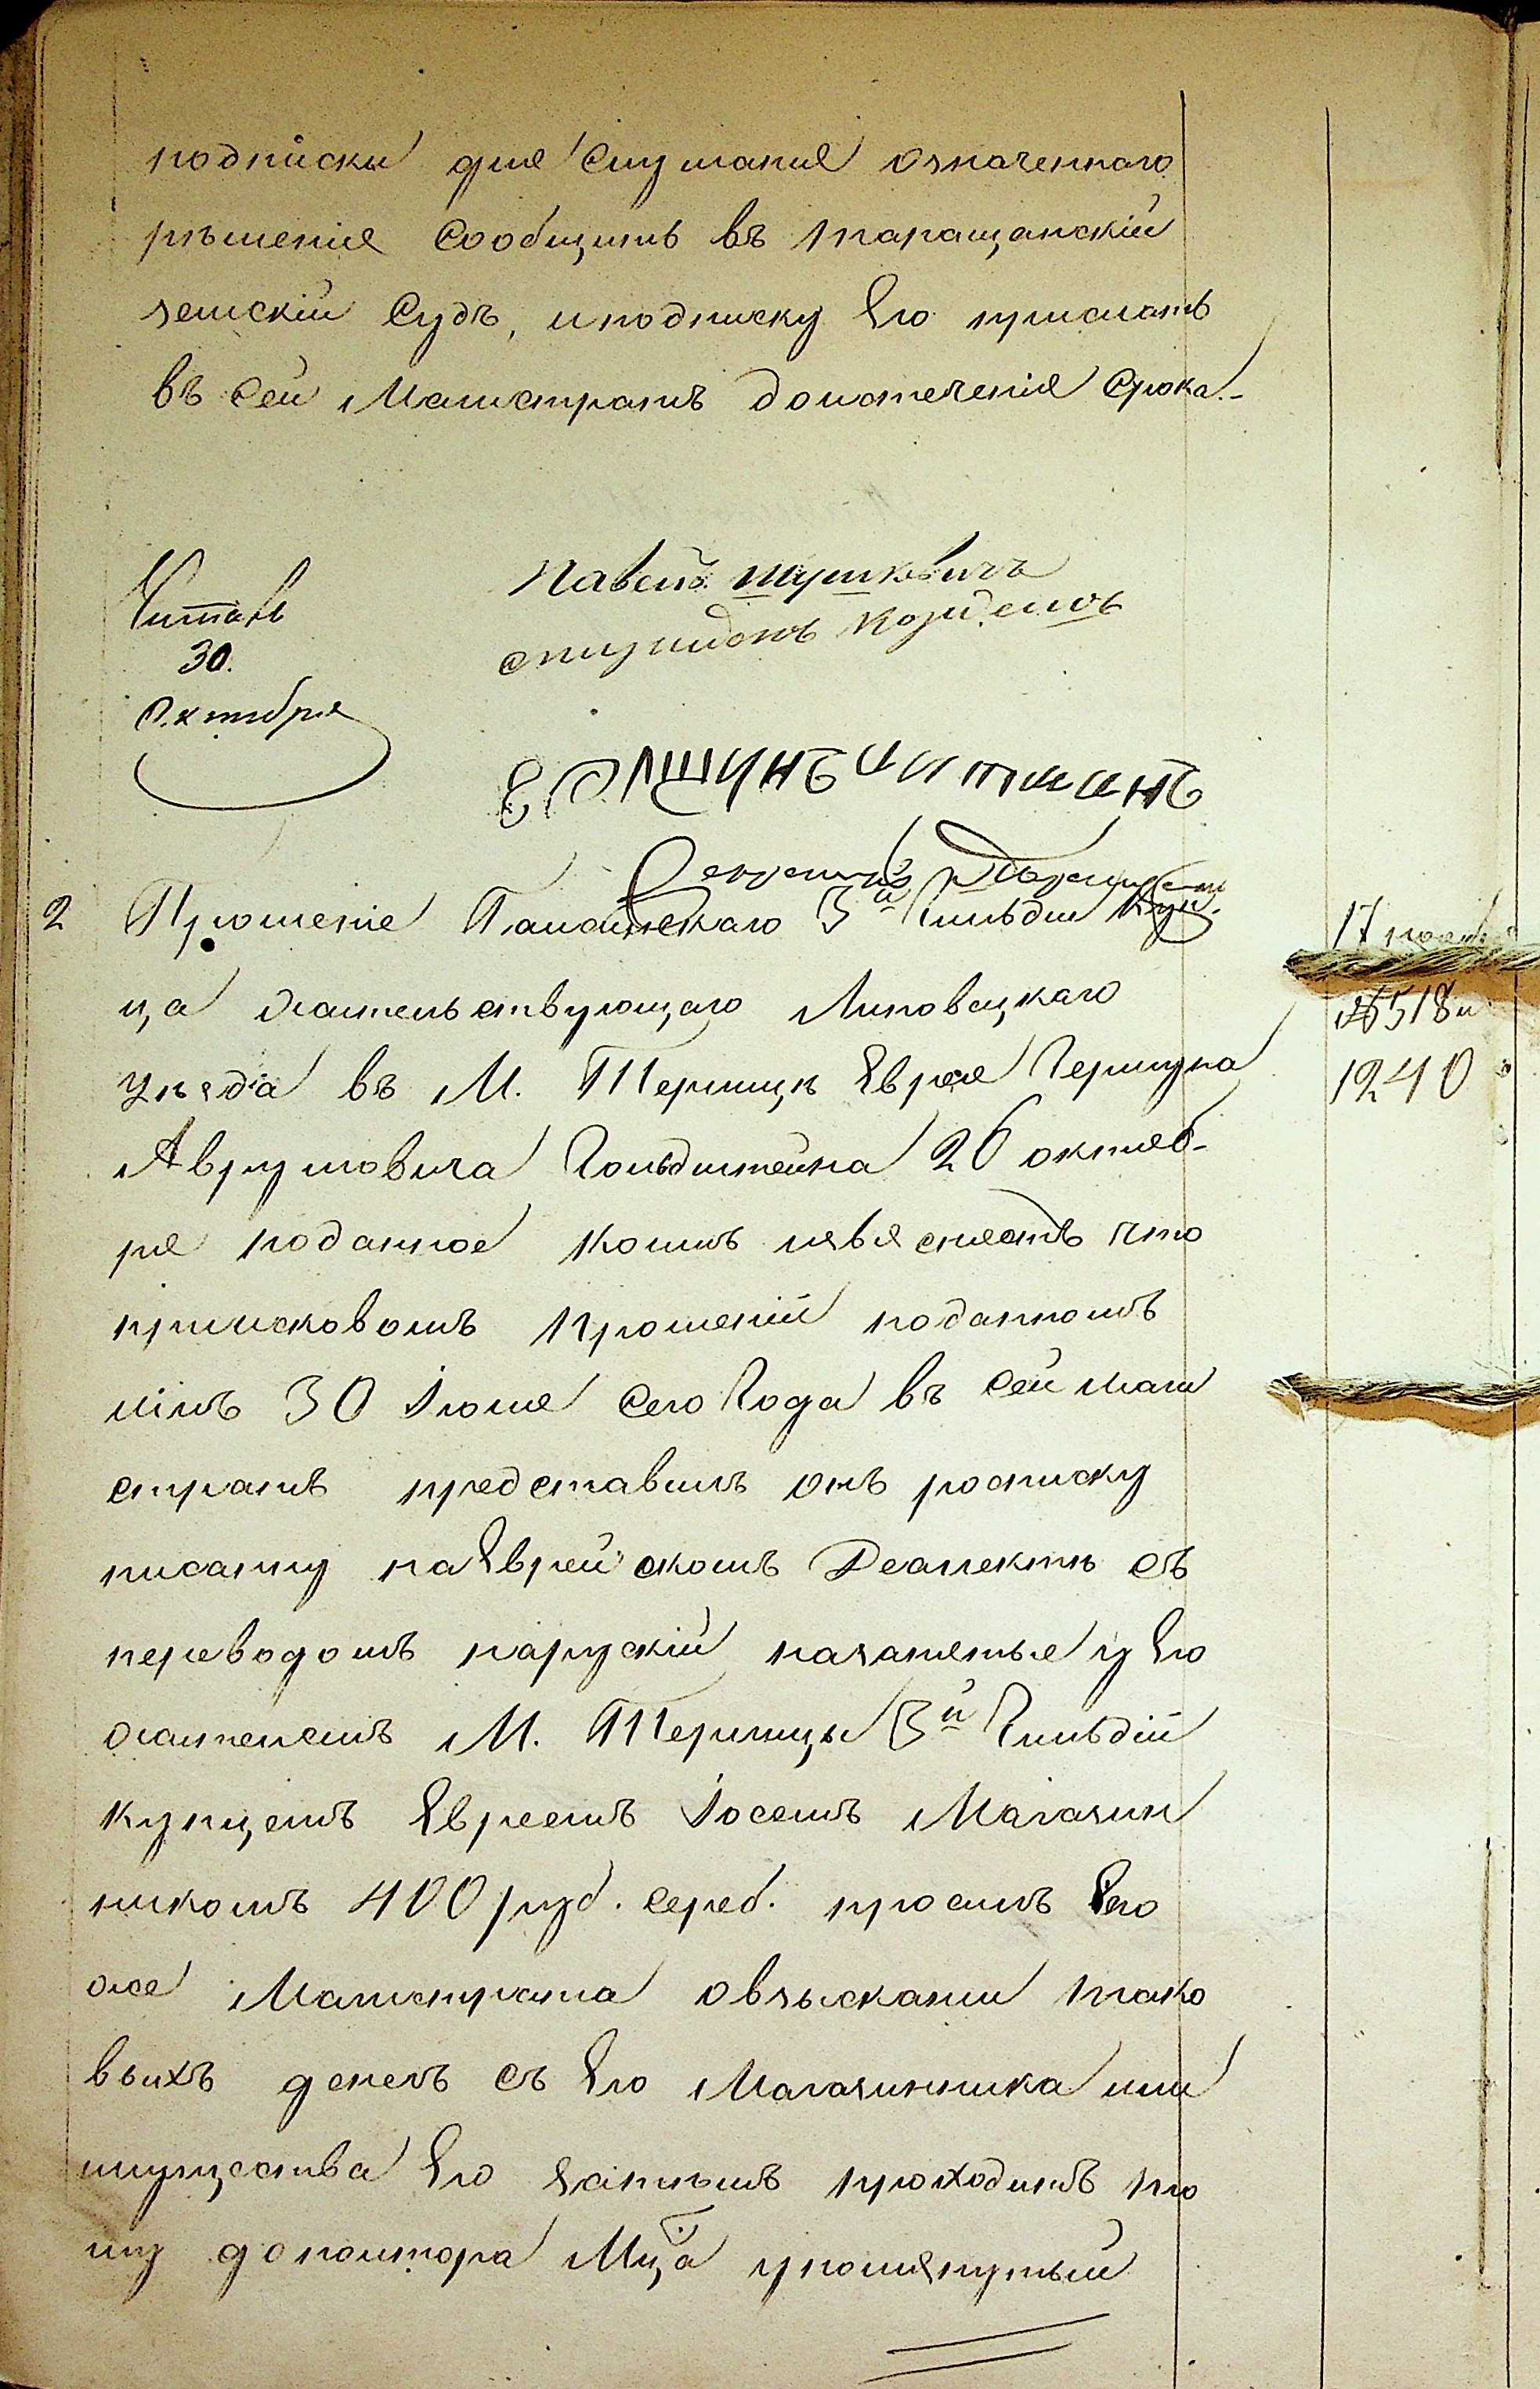 подписки для слушания означеннаго
рѣшенія сообщить въ таращанскій
земскій Судъ, и подписку Его прислать
въ сей Магистратъ доистеченія срока.-
Читалъ
30.
Октября
Павелъ
2 Прошеніе 3й Гильдіи Куп-
ца жительствующаго Липовецкаго
уѣзда въ М. Терлицѣ Еврея Гершуна
Аврумовича Гольдштейна 26 октяб-
ря поданное коимъ изъясняетъ что
приисковомъ прошеніи поданномъ
имъ 30 Іюля сего Года въ сей маги
стратъ представилъ онъ росписку
писанну на Еврейскомъ Деалектѣ съ
переводомъ нарускій назанятые у Его
жителемъ М. Терлицы 3й Гильдій
купцемъ Евреемъ Іосемъ Магазин
никомъ 400 руб. сереб. просилъ Его
же Магистрата овзысканіи тако
выхъ денегъ съ Его Магазинника или
имущества Его проходитъ то
му дополтора Мца упомянутый
17
№518 и
1240